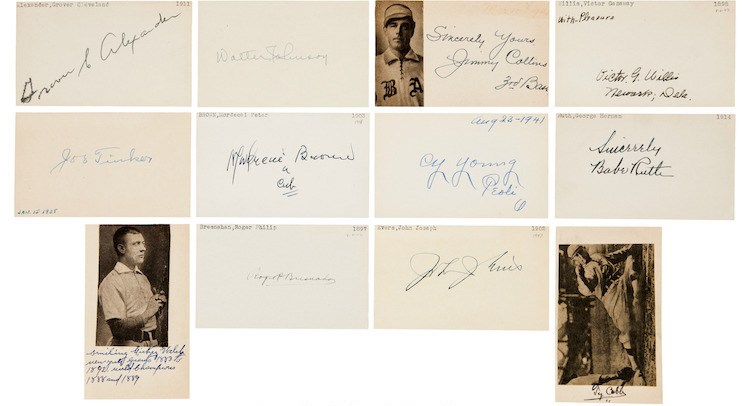 Alexander, Grover Cleveland 1911
Grover C Alexander
Walter Johnson
Sincerely Yours
Jimmy Collins
3rd Base
B A
Willis, Victor Gazaway 1898
With Pleasure
Victor G. Willis
Newark, Dela.
Joe Tinker
Jan 15-1948
BROWN, Mordecai Peter 1903
Mordecai Brown
a
Cub
Aug 23-1941
Cy Young
Peoli
O
Ruth, George Herman 1914
Sincerely
Babe Ruth
Smiling Mickey Welch
new york giants 1883 to
1892 world champions
1888 and 1889
Bresnahan, Roger Philip 1897
Roger P Bresnahan
Evers, John Joseph 1902
John J Evers
Ty Cobb